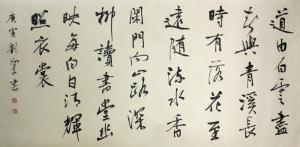 道由白雲盡
春與青溪長
時有落花至
遠隨流水香
閑門向山路深
柳讀書堂幽
映每白日清輝
照衣裳
庚寅劉書